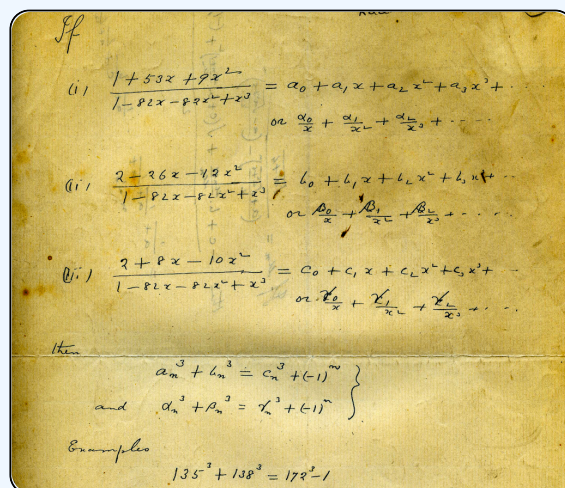 If
(i) (1 + 53x + 9x²)/(1 - 82x - 82x² + x³) = a₀ + a₁x + a₂x² + a₃x³ + ....
or α₀/x + α₁/x² + α₂/x³ + .....
(ii) (2 - 26x - 12x²)/(1 - 82x - 82x² + x³) = b₀ + b₁x + b₂x² + b₃x³ + ...
or β₀/x + β₁/x² + β₂/x³ + .....
(iii) (2 + 8x - 10x²)/(1 - 82x - 82x² + x³) = c₀ + c₁x + c₂x² + c₃x³ + ..
or γ₀/x + γ₁/x² + γ₂/x³ + ....
then
aₙ³ + bₙ³ = cₙ³ + (-1)ⁿ }
and αₙ³ + βₙ³ = γₙ³ + (-1)ⁿ
Examples
135³ + 138³ = 172³ - 1